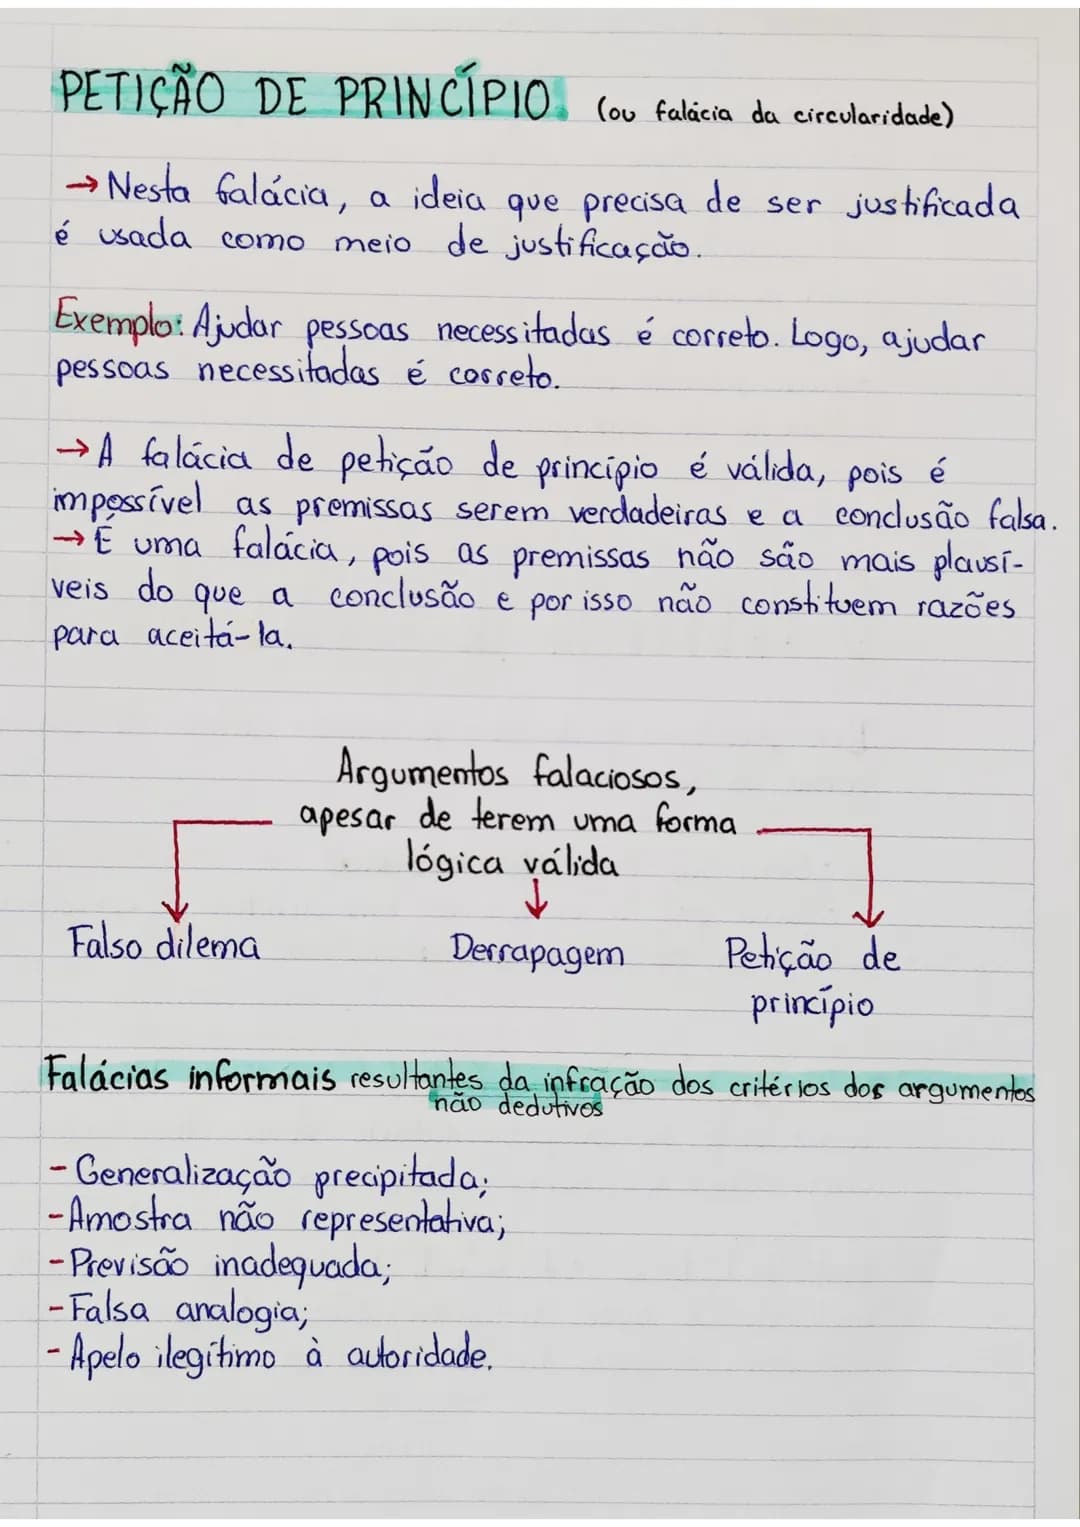 PETIÇÃO DE PRINCÍPIO. (ou falácia da circularidade)
→ Nesta falácia, a ideia que precisa de ser justificada
é usada como meio de justificação.
Exemplo: Ajudar pessoas necessitadas é correto. Logo, ajudar
pessoas necessitadas é correto.
→ A falácia de petição de princípio é válida, pois é
impossível as premissas serem verdadeiras e a conclusão falsa.
→ É uma falácia, pois as premissas não são mais plausí-
veis do que a conclusão e por isso não constituem razões
para aceitá-la.
Argumentos falaciosos,
apesar de terem uma forma
lógica válida
Falso dilema
Derrapagem
Petição de
princípio
Falácias informais resultantes da infração dos critérios dos argumentos
não dedutivos
- Generalização precipitada;
- Amostra não representativa;
- Previsão inadequada;
- Falsa analogia;
- Apelo ilegítimo à autoridade.